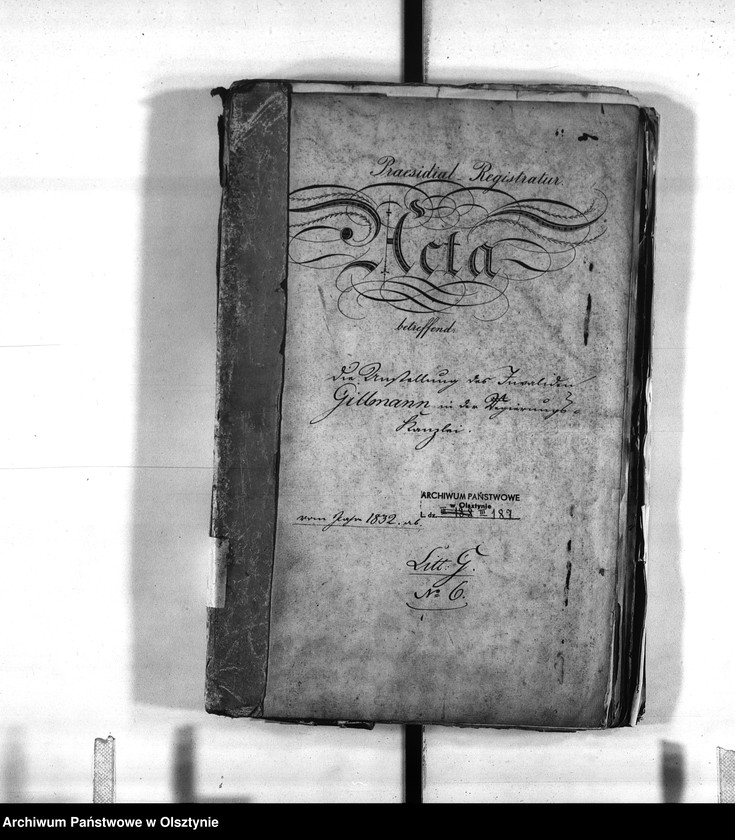 Praesidial Registratur.
Acta
betreffend
die Anstellung des Invaliden
Gillmann in der Regierungs-
Kanzlei.
vom Jahr 1832. ab.
ARCHIWUM PAŃSTWOWE
w Olsztynie
L. dz. III 189
Litt. G.
No 6.
Archiwum Państwowe w Olsztynie